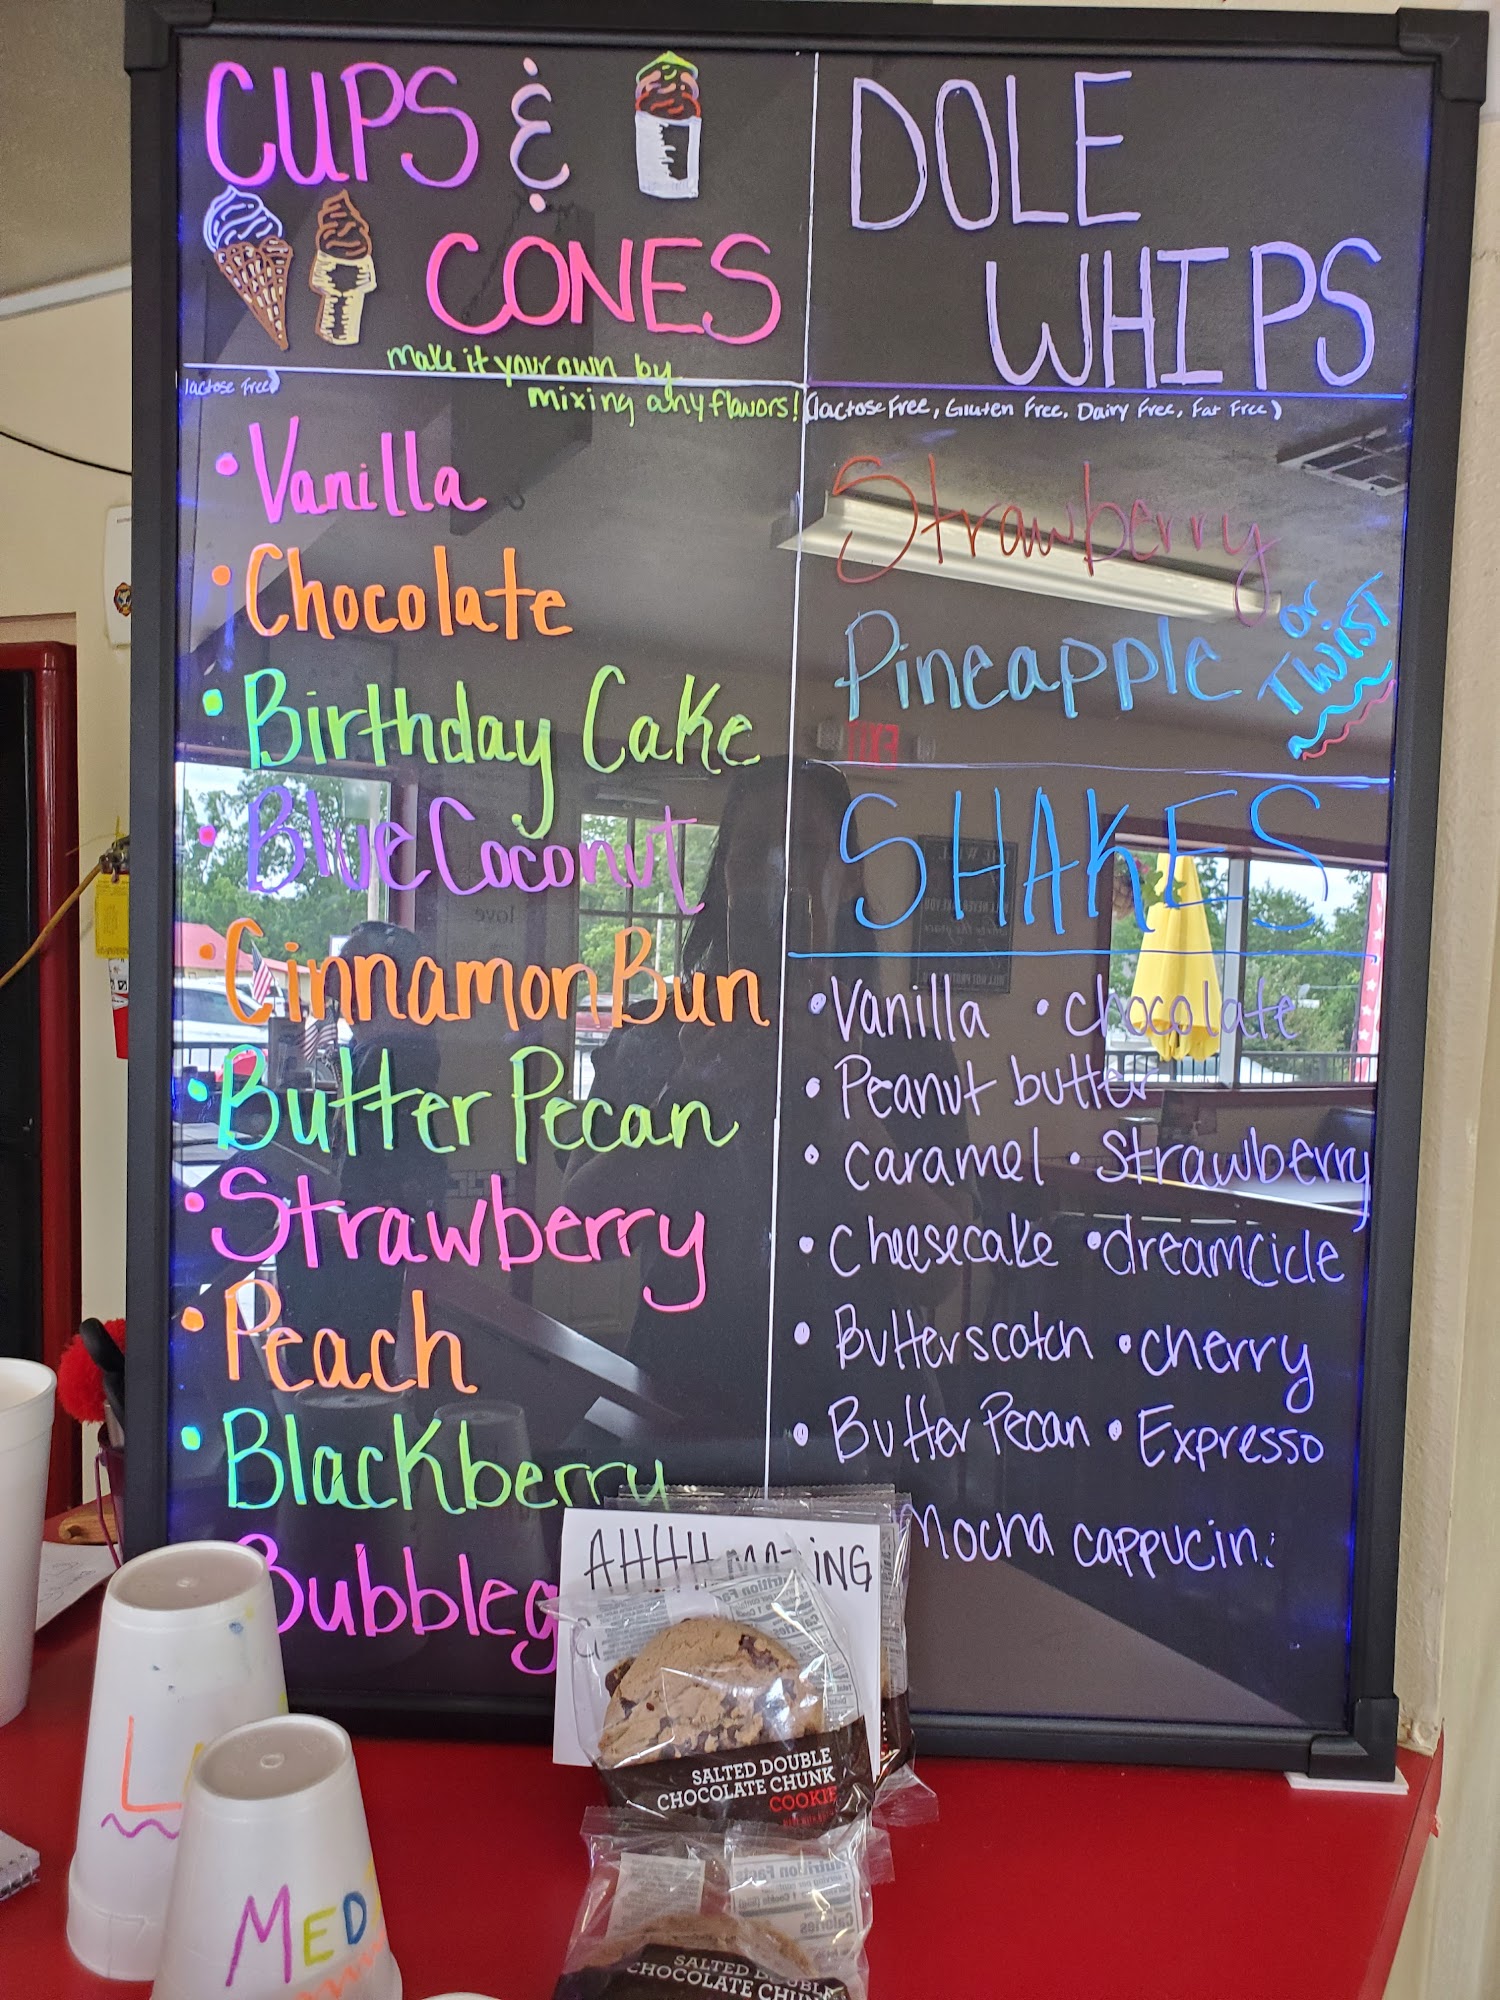 CUPS &
CONES
make it your own by
mixing any flavors!
(lactose Free)
• Vanilla
• Chocolate
• Birthday Cake
• Blue Coconut
• Cinnamon Bun
• Butter Pecan
• Strawberry
• Peach
• Blackberry
Bubbleg
DOLE
WHIPS
(lactose Free, Gluten Free, Dairy Free, Fat Free)
Strawberry
Pineapple or
TWIST
SHAKES
• Vanilla • chocolate
• Peanut butter
• caramel • Strawberry
• Cheesecake • dreamcicle
• Butterscotch • cherry
• Butter Pecan • Expresso
Mocha cappucin
AHHH MAZING
SALTED DOUBLE
CHOCOLATE CHUNK
COOKIE
L
MED
Nutrition Facts
Calories
SALTED DOUBLE
CHOCOLATE CHUN